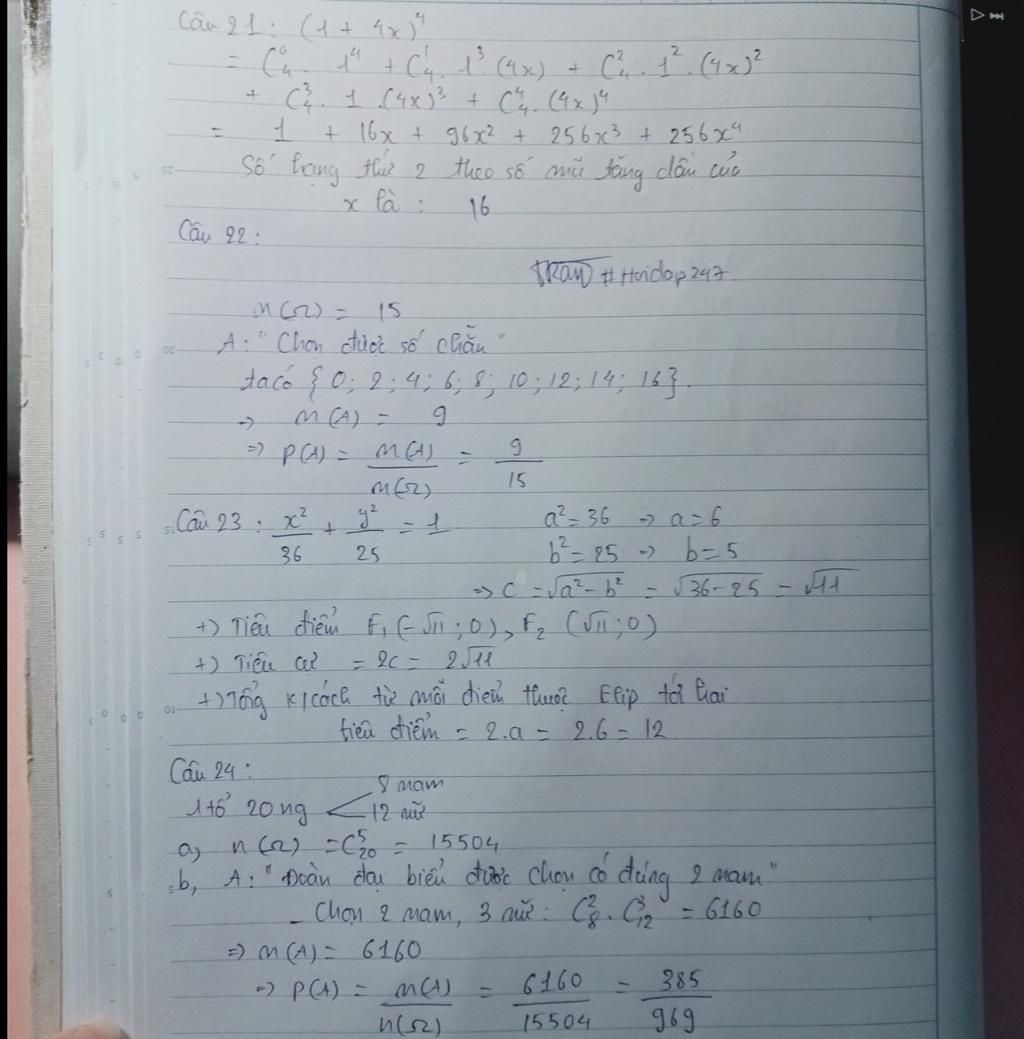 Câu 21: (1 + 4x)⁴
= C⁰₄ . 1⁴ + C¹₄ . 1³ (4x) + C²₄ . 1² . (4x)²
+ C³₄ . 1 . (4x)³ + C⁴₄ . (4x)⁴
= 1 + 16x + 96x² + 256x³ + 256x⁴
Số hạng thứ 2 theo số mũ tăng dần của
x là : 16
Câu 22:
#Hoidap247
n(Ω) = 15
A: "Chọn được số chẵn"
ta có {0; 2; 4; 6; 8; 10; 12; 14; 16}.
→ n(A) = 9
⇒ P(A) = n(A)/n(Ω) = 9/15
Câu 23: x²/36 + y²/25 = 1 a² = 36 → a = 6
b² = 25 → b = 5
⇒ C = √(a² - b²) = √(36 - 25) = √11
+) Tiêu điểm F₁ (-√11 ; 0), F₂ (√11 ; 0)
+) Tiêu cự = 2c = 2√11
+) Tổng k/cách từ mỗi điểm thuộc Elip tới hai
tiêu điểm = 2.a = 2.6 = 12
Câu 24:
1 tổ 20 ng < 8 nam
12 nữ
a, n(Ω) = C⁵₂₀ = 15504
b, A: "Đoàn đại biểu được chọn có đúng 2 nam"
- Chọn 2 nam, 3 nữ: C²₈ . C³₁₂ = 6160
⇒ n(A) = 6160
⇒ P(A) = n(A)/n(Ω) = 6160/15504 = 385/969